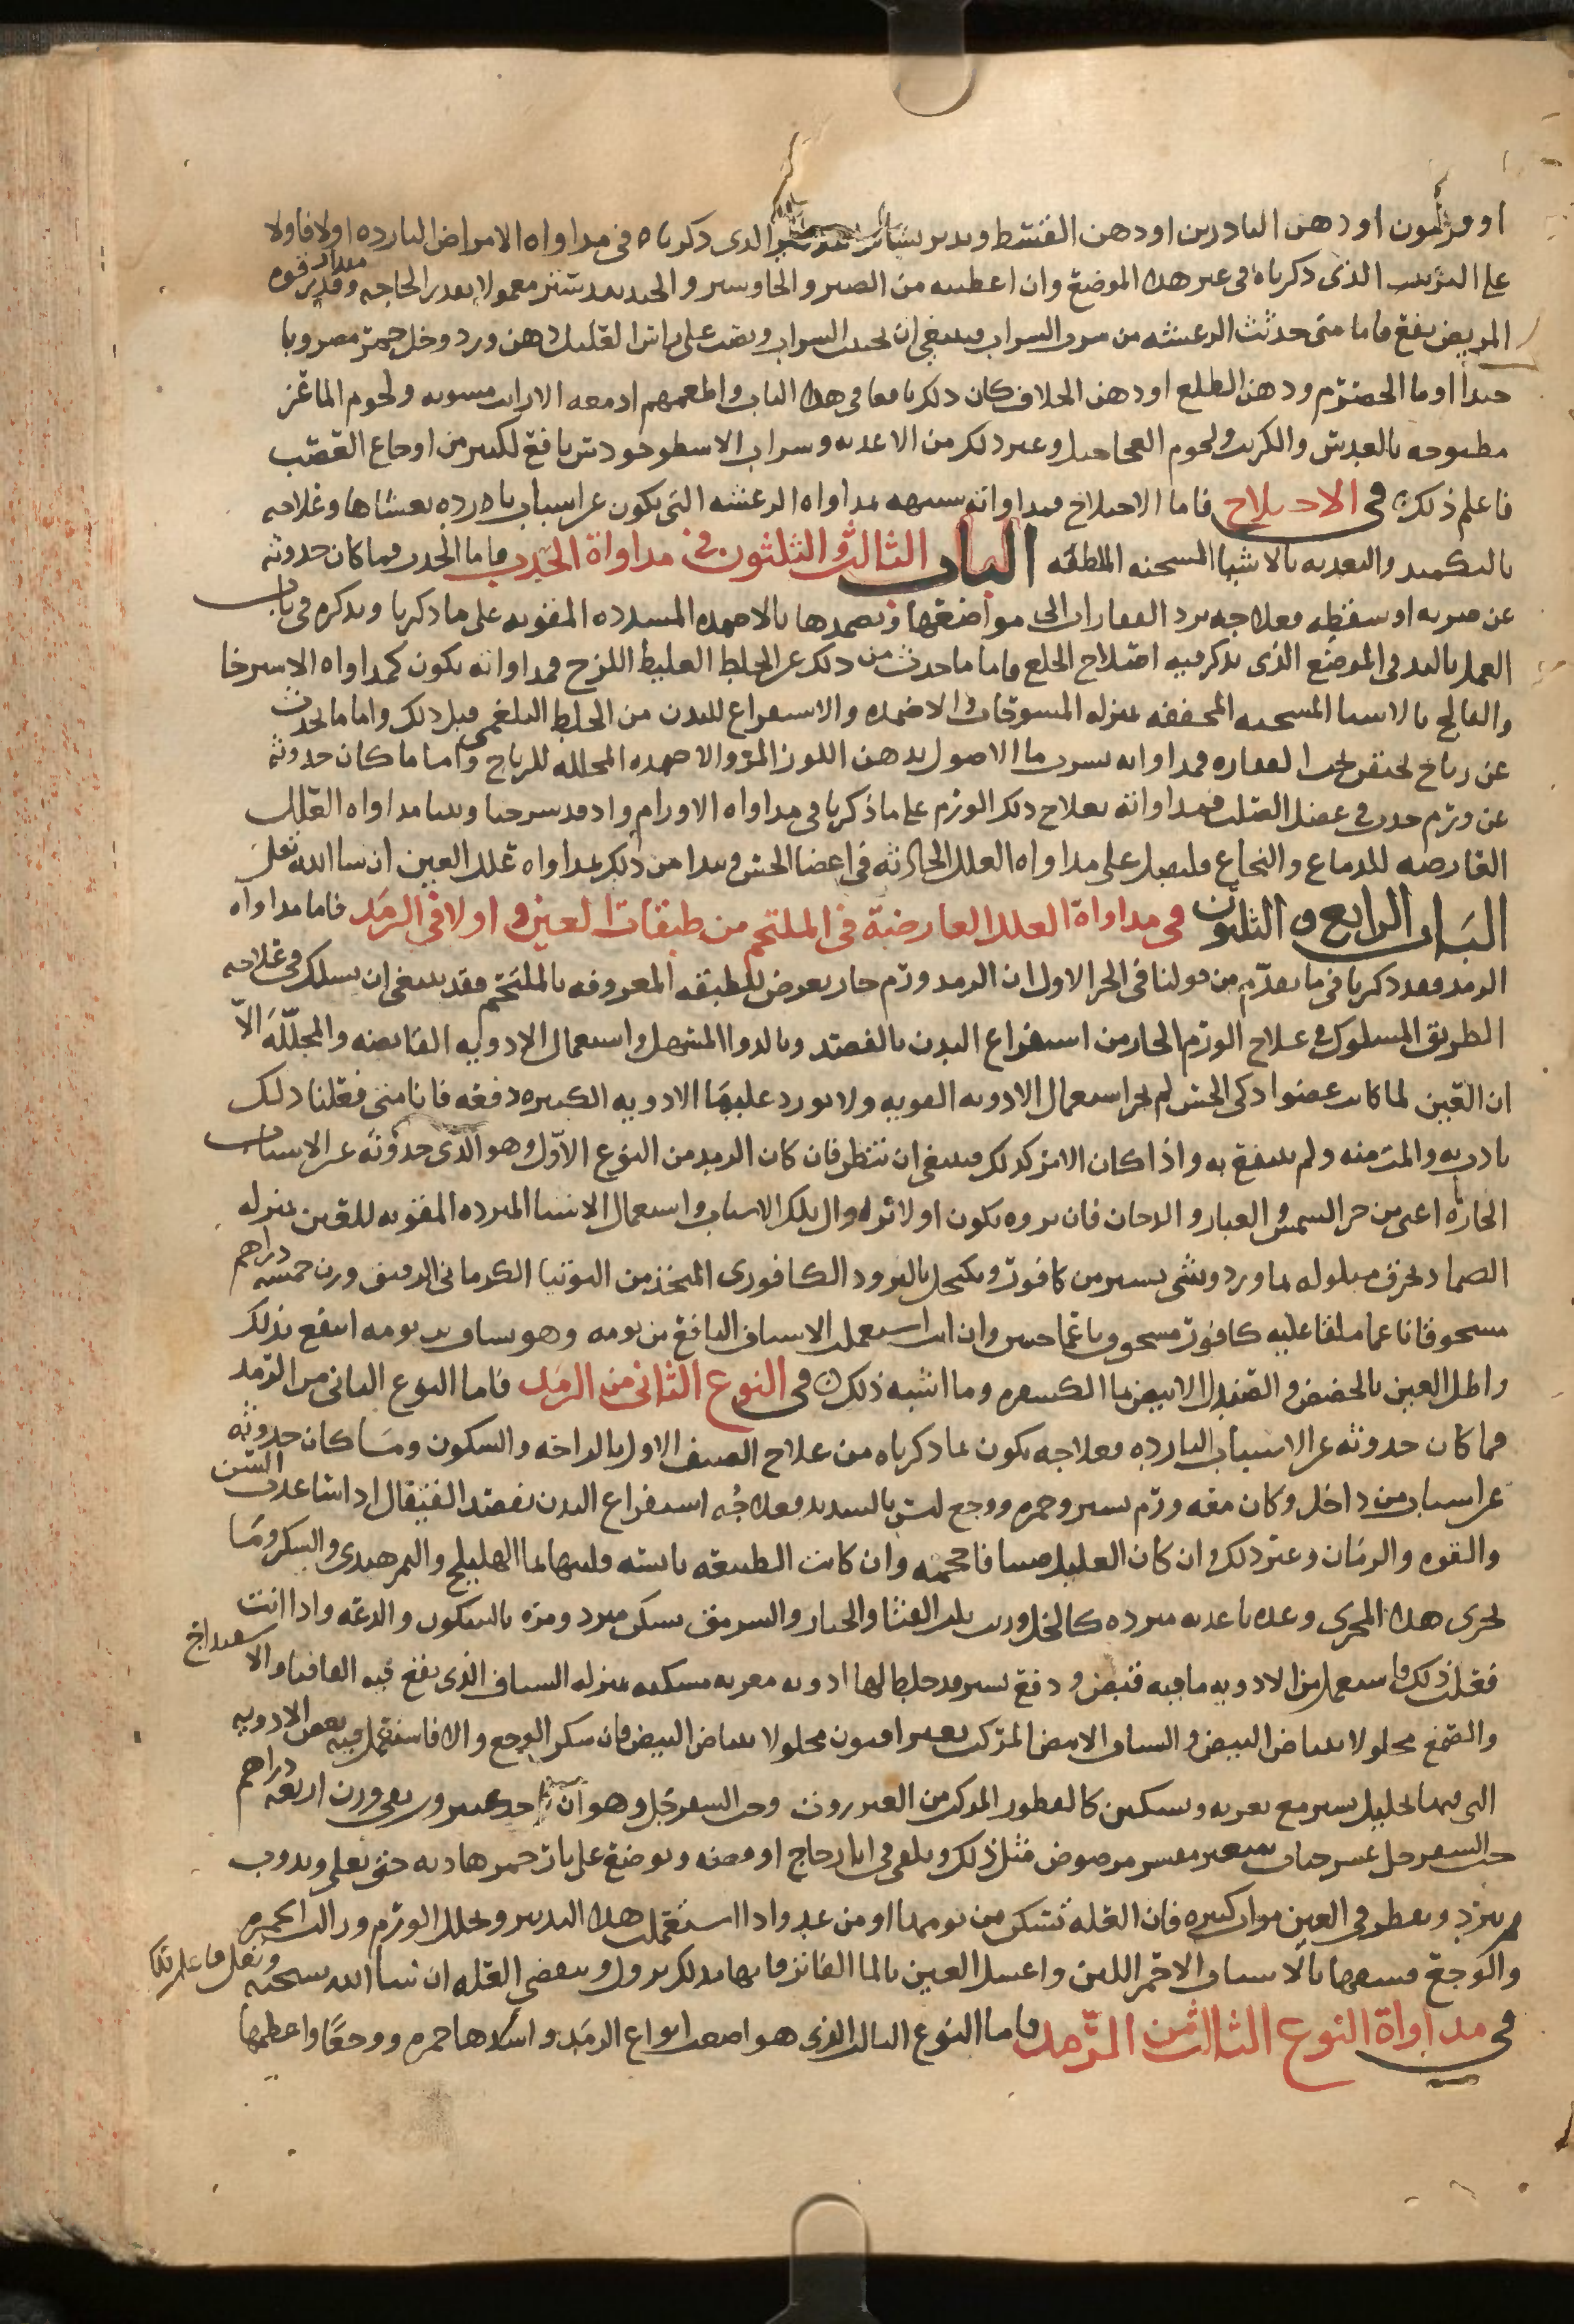 او دهن البادرين او دهن القسط ويدبر بسائر الذى ذكرناه فى مداواه الامراض البارده اولا فاولا
على الترتيب الذى ذكرناه فى غير هذا الموضع وان اعطيته من الصبر والجاوشير والجندبيدستر معمولا بقدر الحاجه ومقدار قوه
المريض نفع فاما متى حدثت الرعشه من شرب الشراب فينبغى ان يجتنب الشراب ويصب على راس العليل دهن ورد وخل خمر مضروبا
جيدا او ما الحصرم ودهن الطلع او دهن الخلاف كان ذلك نافعا فى هذا الباب واطعمهم ادمغه الارانب مشويه ولحوم الماعز
مطبوخه بالعدس والكرنب ولحوم العجاجيل وغير ذلك من الاغذيه وشراب الاسطوخودس نافع لكثير من اوجاع العصب
فاعلم ذلك فى الاختلاج فاما الاختلاج فمداواته شبيهه بمداواه الرعشه التى تكون عن اسباب بارده بعينها وعلاجه
بالتكميد والتغذيه بالاشيا المسخنه الملطفه الباب الثالث والثلثون فى مداواة الخدر فاما الخدر فما كان حدوثه
عن ضربه او سقطه فعلاجه برد الفقارات الى مواضعها وتضمدها بالاضمده المسدده المقويه على ما ذكرنا ونذكره فى باب
العمل باليد فى الموضع الذى نذكر فيه اصلاح الخلع فاما ما حدث من ذلك عن الخلط الغليظ اللزج فمداواته تكون كمداواه الاسترخا
والفالج بالاشيا المسخنه المجففه بمنزله المسوحات والاضمده والاستفراغ للبدن من الخلط البلغمى قبل ذلك واما ما يحدث
عن رياح تحتقن تحت الفقاره فمداواته بشرب ما الاصول بدهن اللوز المر والاضمده المحلله للرياح واما ما كان حدوثه
عن ورم حدث فى عضل الصلب فمداواته بعلاج ذلك الورم على ما ذكرنا فى مداواه الاورام واذ قد شرحنا وبينا مداواه العلل
العارضه للدماغ والنخاع فلنقبل على مداواه العلل الحادثه فى اعضا الحس ونبدا من ذلك بمداواه علل العين ان شا الله تعلى
الباب الرابع والثلثون فى مداواة العلل العارضة فى الملتحم من طبقات العين و اولا فى الرمد فاما مداواه
الرمد فقد ذكرنا فى ما تقدم من قولنا فى الجز الاول ان الرمد ورم حار يعرض للطبقه المعروفه بالملتحم فقد ينبغى ان يسلك فى علاجه
الطريق المسلوك فى علاج الورم الحار من استفراغ البدن بالفصد وبالدوا المسهل واستعمال الادويه القابضه والمحلله الا
ان العين لما كانت عضوا ذكى الحس لم يجز استعمال الادويه القويه ولا يورد عليها الادويه الكثيره دفعه فانا متى فعلنا ذلك
تاذت به والمت منه ولم تنتفع به واذا كان الامر كذلك فينبغى ان ننظر فان كان الرمد من النوع الاول وهو الذى حدوثه عن الاسباب
الحاره اعنى من حر الشمس والغبار والدخان فان بروه يكون اولا بزوال تلك الاسباب واستعمال الاشيا المبرده المقويه للعين بمنزله
الضماد بخرق مبلوله بماورد وشى يسير من كافور ويكحل بالبرود الكافورى المتخذ من التوتيا الكرمانى الرقيق وزن خمسه دراهم
مسحوقا ناعما ملقا عليه كافور مسحوق ناعما حبتين وان انت استعملت الاشياف النافع من يومه وهو شياف بد يومه انتفع بذلك
واطل العين بالحضض والصندل الابيض بما الكسفره وما اشبه ذلك فى النوع الثانى من الرمد فاما النوع الثانى من الرمد
فما كان حدوثه عن الاسباب البارده فعلاجه يكون بما ذكرناه من علاج الصنف الاول بالراحه والسكون وما كان حدوثه
عن اسباب من داخل وكان معه ورم يسير وحمره ووجع ليس بالشديد فعلاجه استفراغ البدن بفصد القيفال اذا ساعدت السن
والقوه والزمان وغير ذلك وان كان العليل صبيا فاحجمه وان كانت الطبيعه يابسه فلينها بما الهليلج والتمر هندى والسكر وما
يجرى هذا المجرى وغذه باغذيه مبرده كالخل وزيت بلب القثا والخيار والسرمق بسكر مبرد ومره بالسكون والدعه واذا انت
فعلت ذلك فاستعمل من الادويه ما فيه قبض ودفع يسير قد خلط لها ادويه مغريه مسكنه بمنزله الشياف الذى يقع فيه القاقيا والاسفيداج
والصمغ محلولا ببياض البيض والشياف الابيض المركب بغير افيون محلولا ببياض البيض فان سكن الوجع والا فاستعمل فيه بعض الادويه
التى فيها تحليل يسير مع تغريه وتسكين كالقطور المركب من العنزروت وحب السفرجل وهو ان ياخذ عنزروت نقى وزن اربعه دراهم
حب السفرجل عشر حبات شعير مقشر مرضوض مثل ذلك ويلقى فى انا زجاج او فضه ويوضع على نار جمر هاديه حتى يغلى ويذوب
ثم يبرد ويقطر فى العين مرار كثيره فان العله تسكن من يومها او من غد واذا استعملت هذا التدبير وتحلل الورم وزالت الحمره
والوجع فشيفها بالاشياف الاحمر اللين واغسل العين بالما الفاتر فانها بذلك تبرو وتنقضى العله ان شا الله سبحنه
فى مداواة النوع الثالث من الرمد فاما النوع الثالث الذى هو اصعب انواع الرمد واشدها حمره ووجعا واعظمها